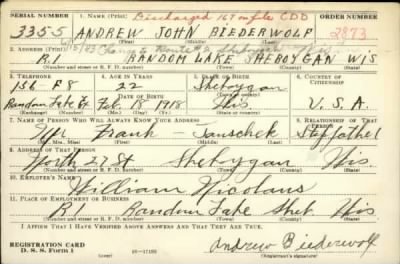 SERIAL NUMBER 1. NAME (Print) Discharged
3355 ANDREW JOHN BIEDERWOLF 2873
(First) (Middle) (Last)
2. ADDRESS (Print)
R1 RANDOM LAKE SHEBOYGAN WIS
(Number and street or R. F. D. number) (Town) (County) (State)
3. TELEPHONE 4. AGE IN YEARS 5. PLACE OF BIRTH 6. COUNTRY OF CITIZENSHIP
156-F8 22 Sheboygan
DATE OF BIRTH
Random Lake Ex Feb. 18 1918 Wis. U.S.A.
(Exchange) (Number) (Mo.) (Day) (Yr.) (State or country)
7. NAME OF PERSON WHO WILL ALWAYS KNOW YOUR ADDRESS RELATIONSHIP OF THAT PERSON
Mr Frank - Janschek Stepfather
(Mr., Mrs., Miss) (First) (Middle) (Last)
8. ADDRESS OF THAT PERSON
North 27 St Sheboygan Wis.
(Number and street or R. F. D. number) (Town) (County) (State)
10. EMPLOYER'S NAME
William Nicolaus
11. PLACE OF EMPLOYMENT OR BUSINESS
R1 Random Lake Sheb. Wis
(Number and street or R. F. D. number) (Town) (County) (State)
I AFFIRM THAT I HAVE VERIFIED ABOVE ANSWERS AND THAT THEY ARE TRUE.
REGISTRATION CARD
D. S. S. Form 1 16-17105 Andrew Biederwolf
(Registrant's signature)